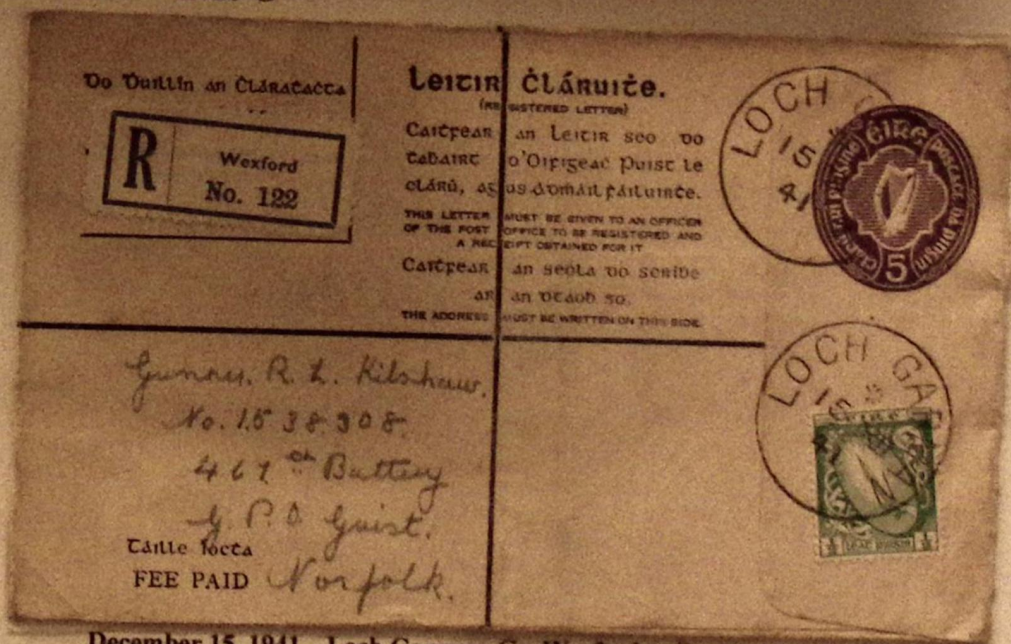 Do Ḋuillín an Ċláraċaċta
R
Wexford
No. 122
Leitir Ċláruiṫe.
(REGISTERED LETTER)
Caiṫfear an Leitir seo do
ṫaḃairt d'Oifigeaċ Puist le
clárú, agus admáil
THIS LETTER MUST BE GIVEN TO AN OFFICER
OF THE POST OFFICE TO BE REGISTERED AND
A RECEIPT OBTAINED FOR IT
Caiṫfear an seola do scríḃe
ar an dtaoḃ so.
THE ADDRESS MUST BE WRITTEN ON THIS SIDE.
LOCH
15
41
éire
5
LOCH GAR
15
41
½ ½
Gunner. R. L. Kilshaw.
No. 1538908
467th Battery
G. P. O Guist.
Norfolk.
Táille íocṫa
FEE PAID
December 15, 1941